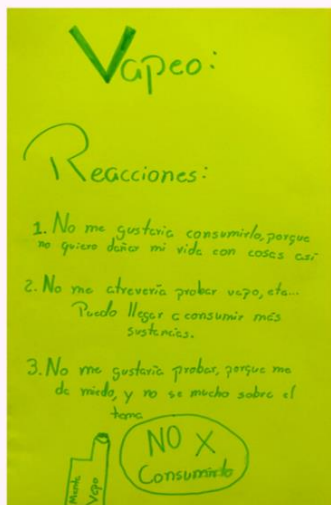 Vapeo:
Reacciones:
1. No me gustaria consumirlo, porque
no quiero dañar mi vida con cosas asi
2. No me atrevería probar vapo, eta...
Puedo llegar a consumir más
sustancias.
3. No me gustaria probar, porque me
da miedo, y no se mucho sobre el
tema
NO X
Consumirlo
Menta
Vapo